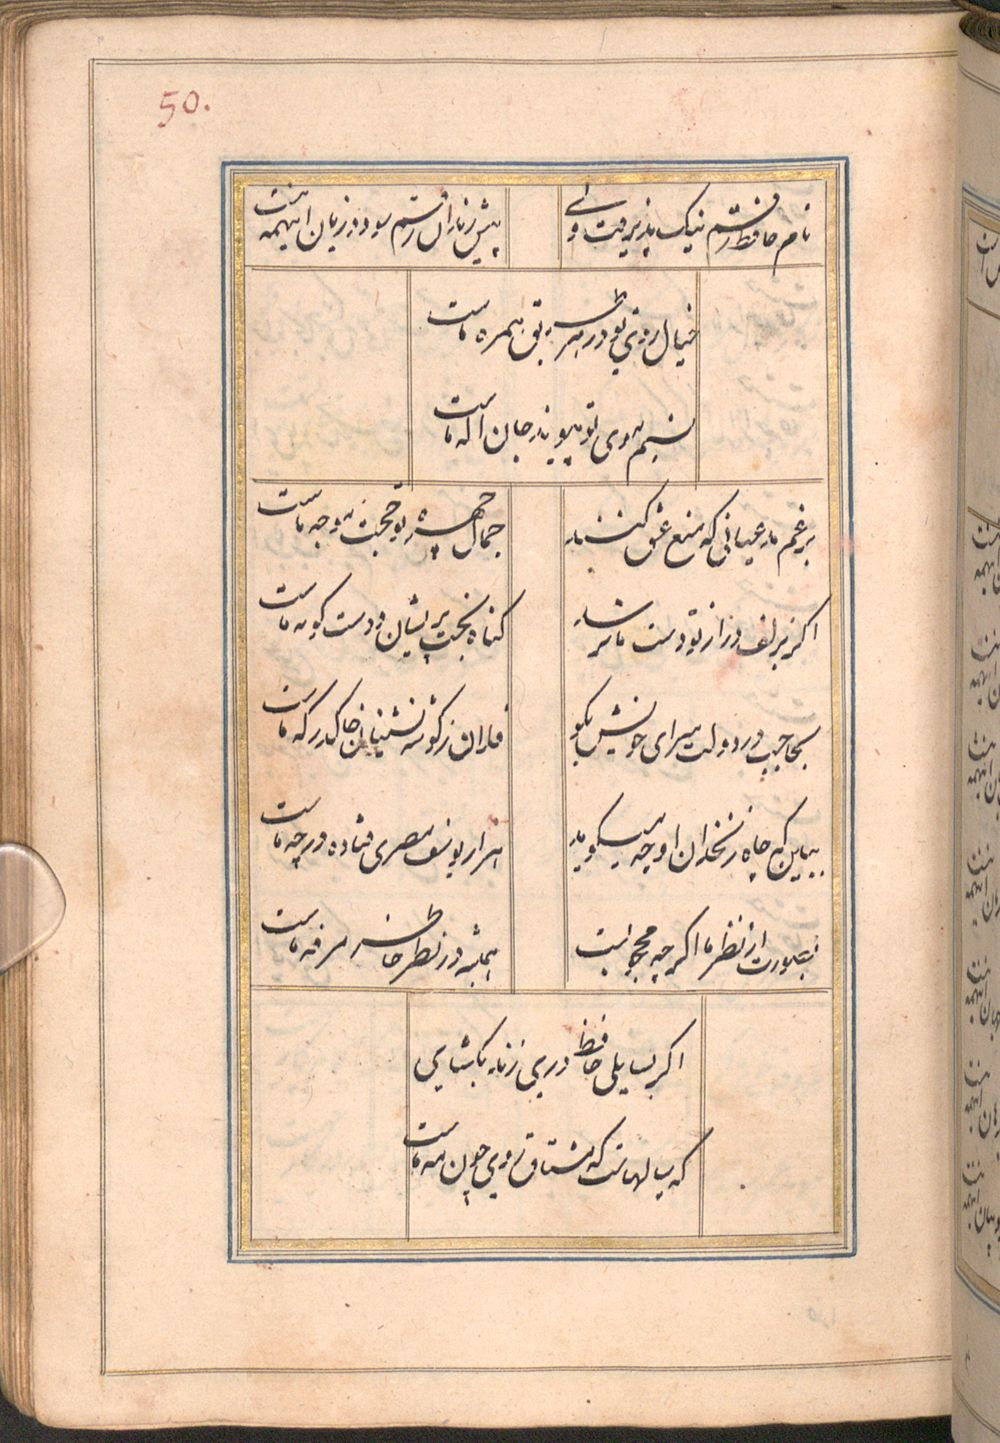 50.
نام حافظ رقم نیک پذیرفت ولی
پیش رندان رقم سود و زیان اینهمه نیست
خیال روی تو در هر طریق همره ماست
نسیم موی تو پیوند جان آگه ماست
برغم مدعیانی که منع عشق کنند
جمال چهره تو حجت موجه ماست
اگر بزلف دراز تو دست ما نرسد
گناه بخت پریشان و دست کوته ماست
بحاجب در دولت سرای خویش بگو
فلان ز گوشه نشینان خاک درگه ماست
ببین که چاه زنخدان او چه میگوید
هزار یوسف مصری فتاده در چه ماست
بصورت از نظر ما اگرچه محجوبست
همیشه در نظر خاطر مرفه ماست
اگر بسایلی حافظ دری زند بکشای
که سالهاست که مشتاق روی چون مه ماست